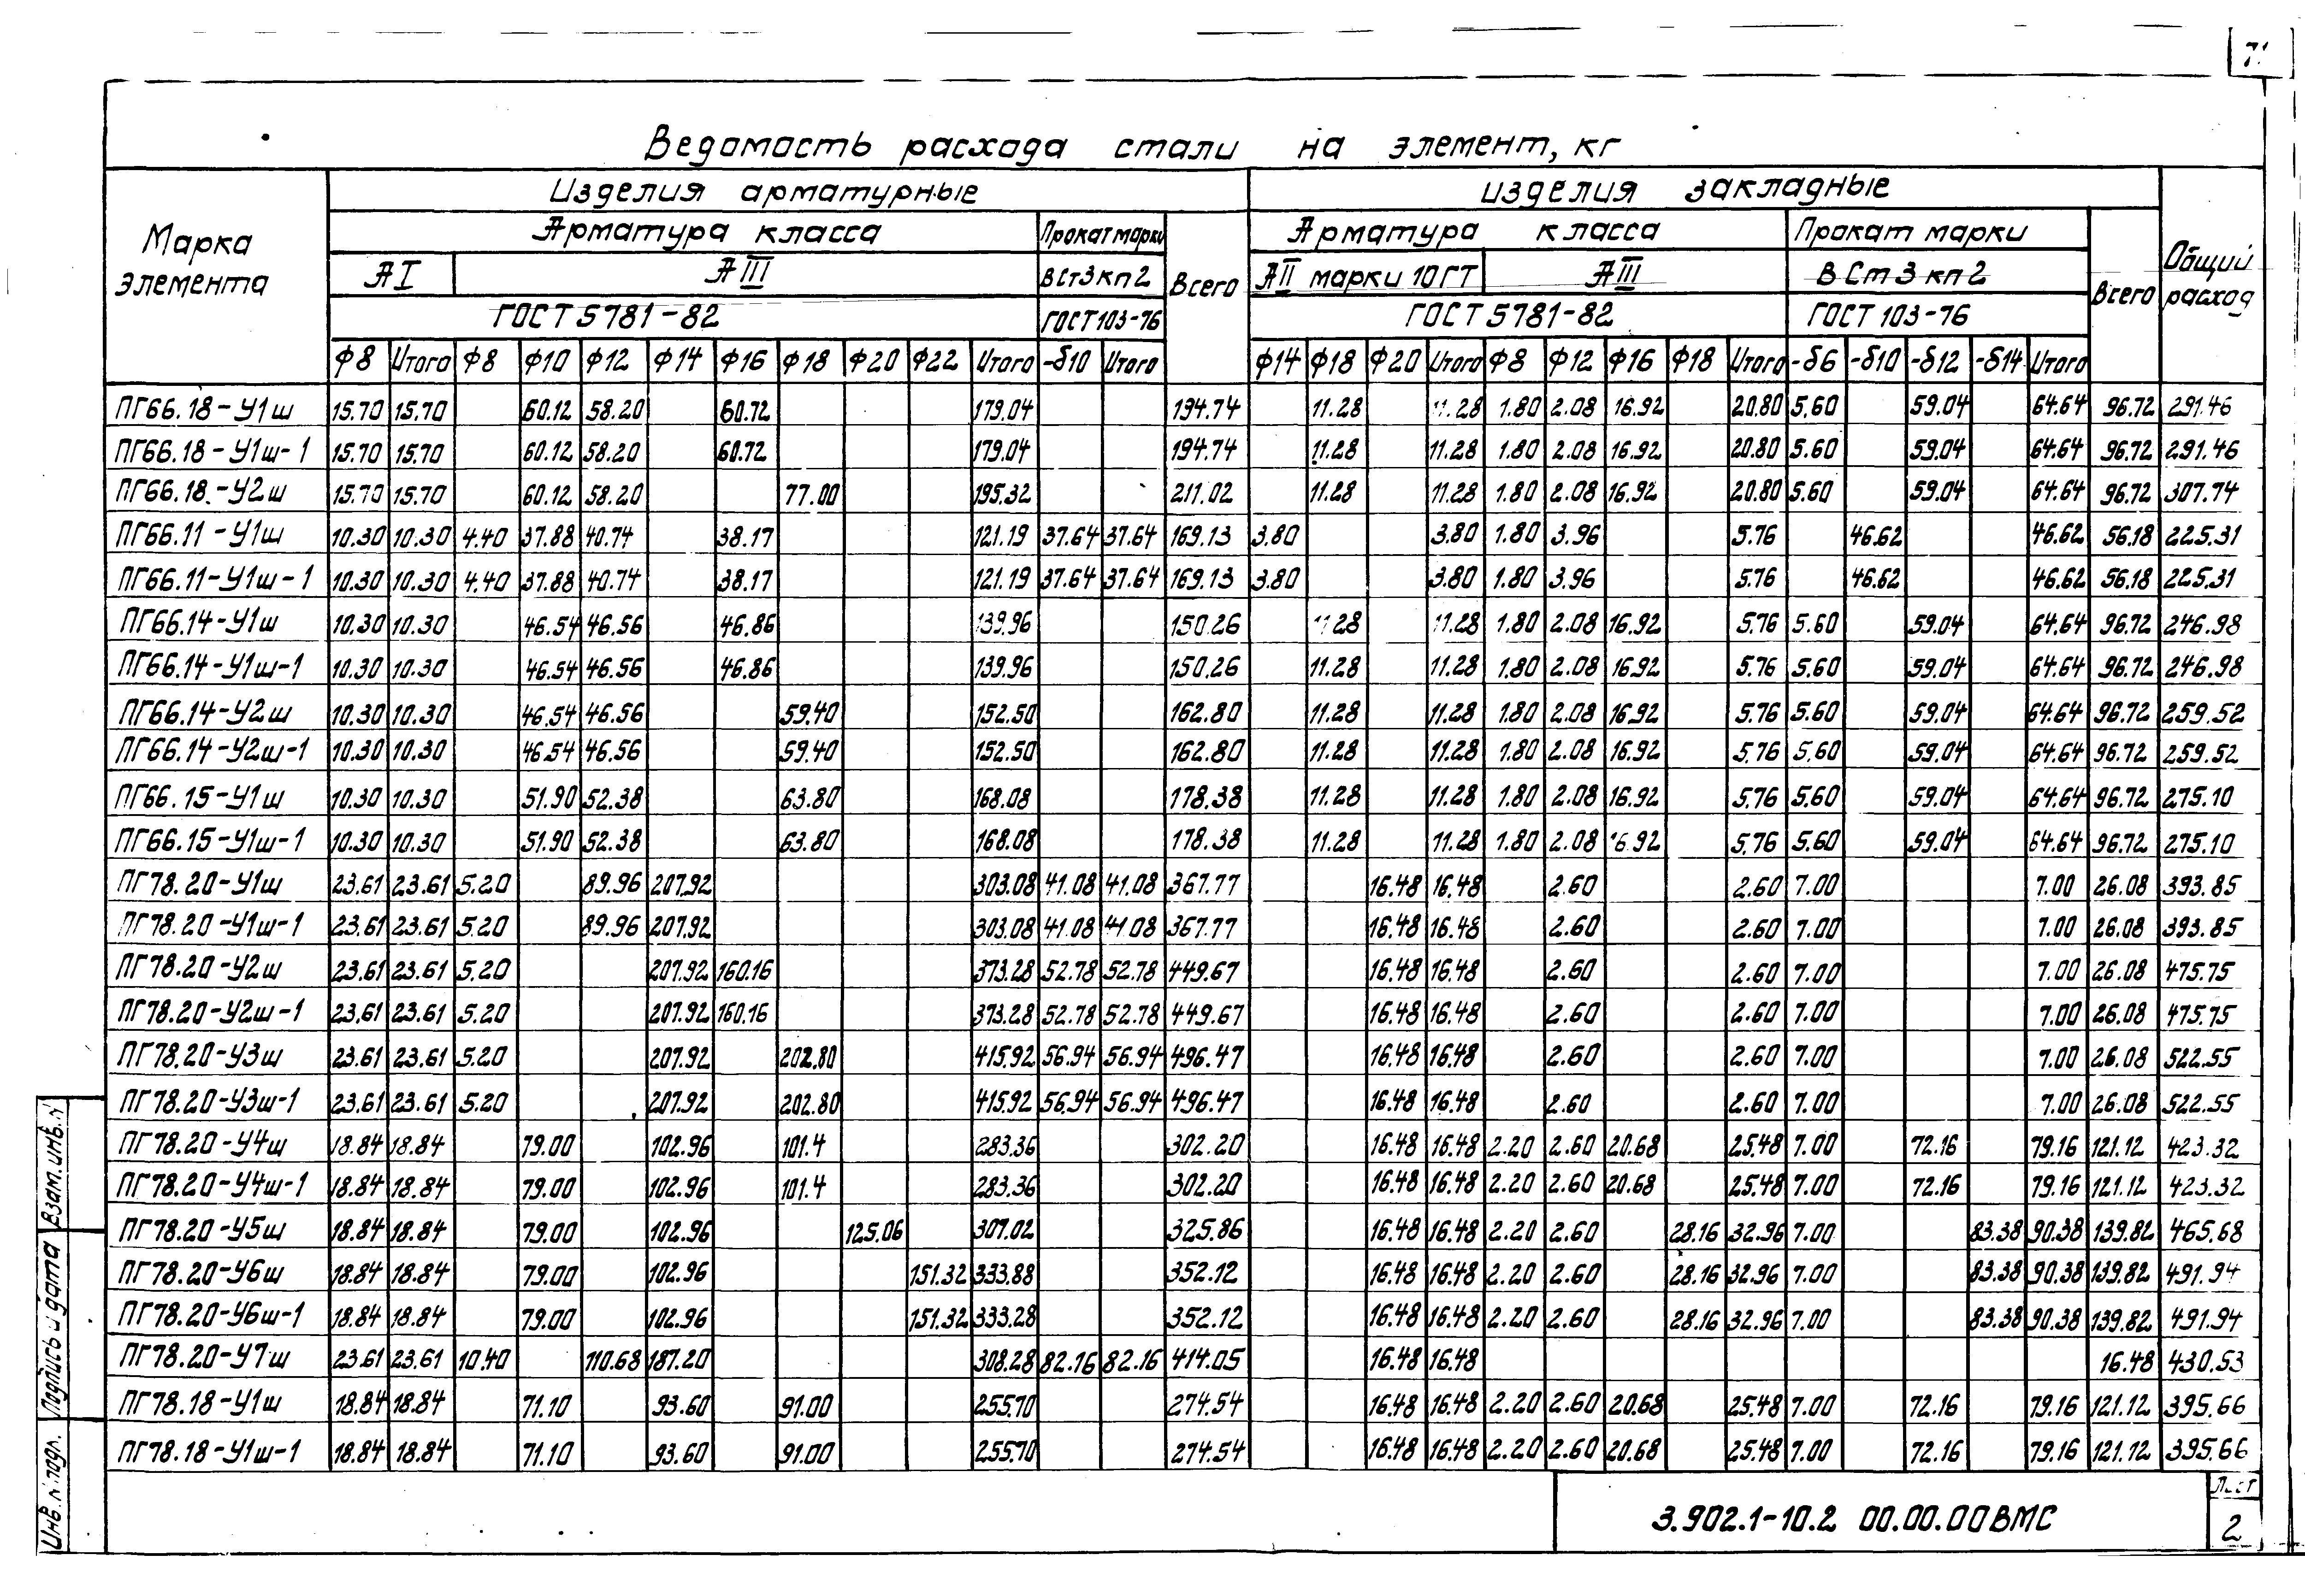 7
Ведомость расхода стали на элемент, кг
Марка элемента
Изделия арматурные
Изделия закладные
Общий расход
Арматура класса
Прокат марки
Всего
Арматура класса
Прокат марки
Всего
АI АIII ВСт3кп2 АII марки 10ГТ АIII ВСт3кп2
ГОСТ 5781-82 ГОСТ 103-76 ГОСТ 5781-82 ГОСТ 103-76
Ф8 Итого Ф8 Ф10 Ф12 Ф14 Ф16 Ф18 Ф20 Ф22 Итого -δ10 Итого Ф14 Ф18 Ф20 Итого Ф8 Ф12 Ф16 Ф18 Итого -δ6 -δ10 -δ12 -δ14 Итого
ПГ66.18-У1ш 15.70 15.70 60.12 58.20 60.72 179.04 194.74 11.28 11.28 1.80 2.08 16.92 20.80 5.60 59.04 64.64 96.72 291.46
ПГ66.18-У1ш-1 15.70 15.70 60.12 58.20 60.72 179.04 194.74 11.28 11.28 1.80 2.08 16.92 20.80 5.60 59.04 64.64 96.72 291.46
ПГ66.18-У2ш 15.70 15.70 60.12 58.20 77.00 195.32 211.02 11.28 11.28 1.80 2.08 16.92 20.80 5.60 59.04 64.64 96.72 307.74
ПГ66.11-У1ш 10.30 10.30 4.40 37.88 40.74 38.17 121.19 37.64 37.64 169.13 3.80 3.80 1.80 3.96 5.76 46.62 46.62 56.18 225.31
ПГ66.11-У1ш-1 10.30 10.30 4.40 37.88 40.74 38.17 121.19 37.64 37.64 169.13 3.80 3.80 1.80 3.96 5.76 46.62 46.62 56.18 225.31
ПГ66.14-У1ш 10.30 10.30 46.54 46.56 46.86 139.96 150.26 11.28 11.28 1.80 2.08 16.92 5.76 5.60 59.04 64.64 96.72 246.98
ПГ66.14-У1ш-1 10.30 10.30 46.54 46.56 46.86 139.96 150.26 11.28 11.28 1.80 2.08 16.92 5.76 5.60 59.04 64.64 96.72 246.98
ПГ66.14-У2ш 10.30 10.30 46.54 46.56 59.40 152.50 162.80 11.28 11.28 1.80 2.08 16.92 5.76 5.60 59.04 64.64 96.72 259.52
ПГ66.14-У2ш-1 10.30 10.30 46.54 46.56 59.40 152.50 162.80 11.28 11.28 1.80 2.08 16.92 5.76 5.60 59.04 64.64 96.72 259.52
ПГ66.15-У1ш 10.30 10.30 51.90 52.38 63.80 168.08 178.38 11.28 11.28 1.80 2.08 16.92 5.76 5.60 59.04 64.64 96.72 275.10
ПГ66.15-У1ш-1 10.30 10.30 51.90 52.38 63.80 168.08 178.38 11.28 11.28 1.80 2.08 16.92 5.76 5.60 59.04 64.64 96.72 275.10
ПГ78.20-У1ш 23.61 23.61 5.20 89.96 207.92 303.08 41.08 41.08 367.77 16.48 16.48 2.60 2.60 7.00 7.00 26.08 393.85
ПГ78.20-У1ш-1 23.61 23.61 5.20 89.96 207.92 303.08 41.08 41.08 367.77 16.48 16.48 2.60 2.60 7.00 7.00 26.08 393.85
ПГ78.20-У2ш 23.61 23.61 5.20 207.92 160.16 373.28 52.78 52.78 449.67 16.48 16.48 2.60 2.60 7.00 7.00 26.08 475.75
ПГ78.20-У2ш-1 23.61 23.61 5.20 207.92 160.16 373.28 52.78 52.78 449.67 16.48 16.48 2.60 2.60 7.00 7.00 26.08 475.75
ПГ78.20-У3ш 23.61 23.61 5.20 207.92 202.80 415.92 56.94 56.94 496.47 16.48 16.48 2.60 2.60 7.00 7.00 26.08 522.55
ПГ78.20-У3ш-1 23.61 23.61 5.20 207.92 202.80 415.92 56.94 56.94 496.47 16.48 16.48 2.60 2.60 7.00 7.00 26.08 522.55
ПГ78.20-У4ш 18.84 18.84 79.00 102.96 101.4 283.36 302.20 16.48 16.48 2.20 2.60 20.68 25.48 7.00 72.16 79.16 121.12 423.32
ПГ78.20-У4ш-1 18.84 18.84 79.00 102.96 101.4 283.36 302.20 16.48 16.48 2.20 2.60 20.68 25.48 7.00 72.16 79.16 121.12 423.32
ПГ78.20-У5ш 18.84 18.84 79.00 102.96 125.06 307.02 325.86 16.48 16.48 2.20 2.60 28.16 32.96 7.00 83.38 90.38 139.82 465.68
ПГ78.20-У6ш 18.84 18.84 79.00 102.96 151.32 333.88 352.12 16.48 16.48 2.20 2.60 28.16 32.96 7.00 83.38 90.38 139.82 491.94
ПГ78.20-У6ш-1 18.84 18.84 79.00 102.96 151.32 333.28 352.12 16.48 16.48 2.20 2.60 28.16 32.96 7.00 83.38 90.38 139.82 491.94
ПГ78.20-У7ш 23.61 23.61 10.40 110.68 187.20 308.28 82.16 82.16 414.05 16.48 16.48 16.48 430.53
ПГ78.18-У1ш 18.84 18.84 71.10 93.60 91.00 255.70 274.54 16.48 16.48 2.20 2.60 20.68 25.48 7.00 72.16 79.16 121.12 395.66
ПГ78.18-У1ш-1 18.84 18.84 71.10 93.60 91.00 255.70 274.54 16.48 16.48 2.20 2.60 20.68 25.48 7.00 72.16 79.16 121.12 395.66
Взам.инв.N
Подпись и дата
Инв.N подл.
3.902.1-10.2 00.00.00ВМС
Лист
2